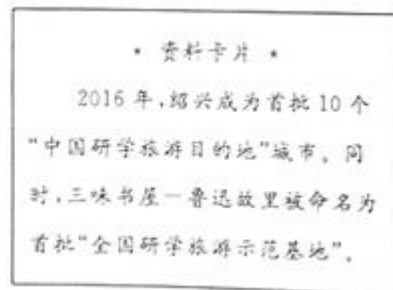 * 资料卡片 *
2016年,绍兴成为首批10个
“中国研学旅游目的地”城市。同
时,三味书屋—鲁迅故里被命名为
首批“全国研学旅游示范基地”。